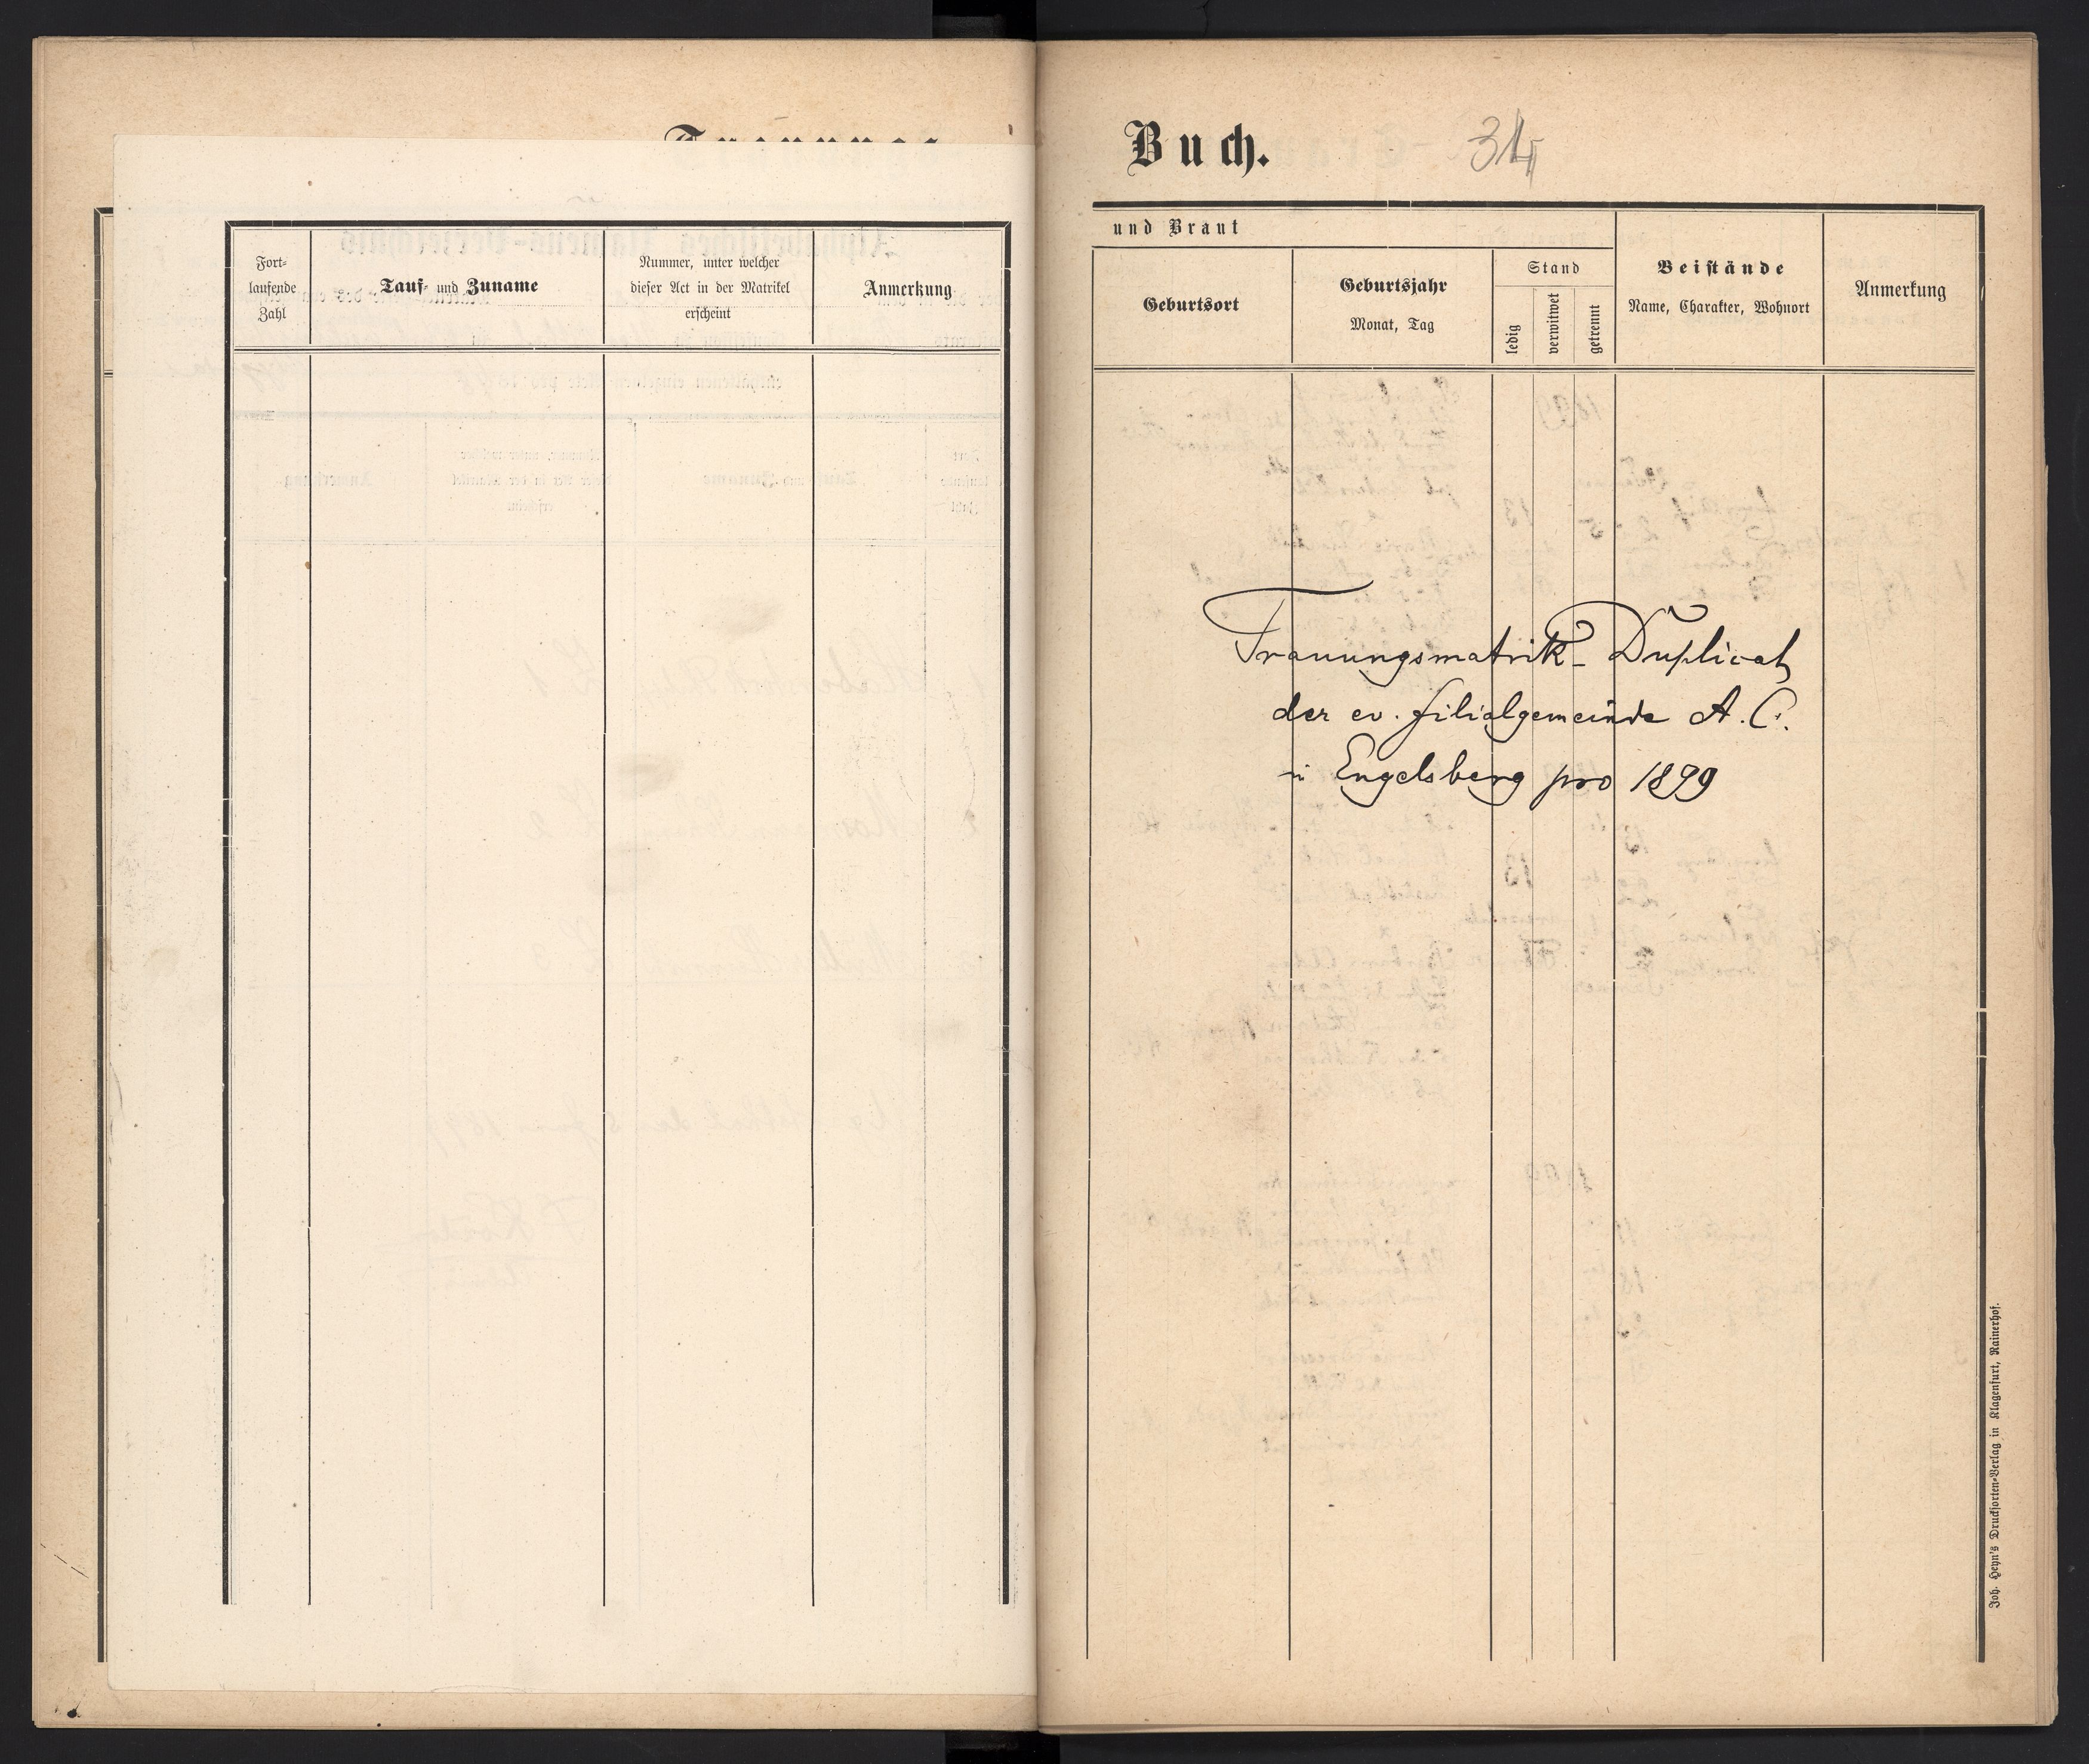 Fort-
laufende
Zahl
Tauf- und Zuname
Nummer, unter welcher
dieser Act in der Matrikel
erscheint
Anmerkung
Buch.
und Braut
Geburtsort
Geburtsjahr
Monat, Tag
Stand
ledig
verwitwet
getrennt
Beistände
Name, Charakter, Wohnort
Anmerkung
Trauungsmatrik-Duplicat
der ev. Filialgemeinde A. C.
in Engelsberg pro 1899
Joh. Heyn's Drucksorten-Verlag in Klagenfurt, Rainerhof.